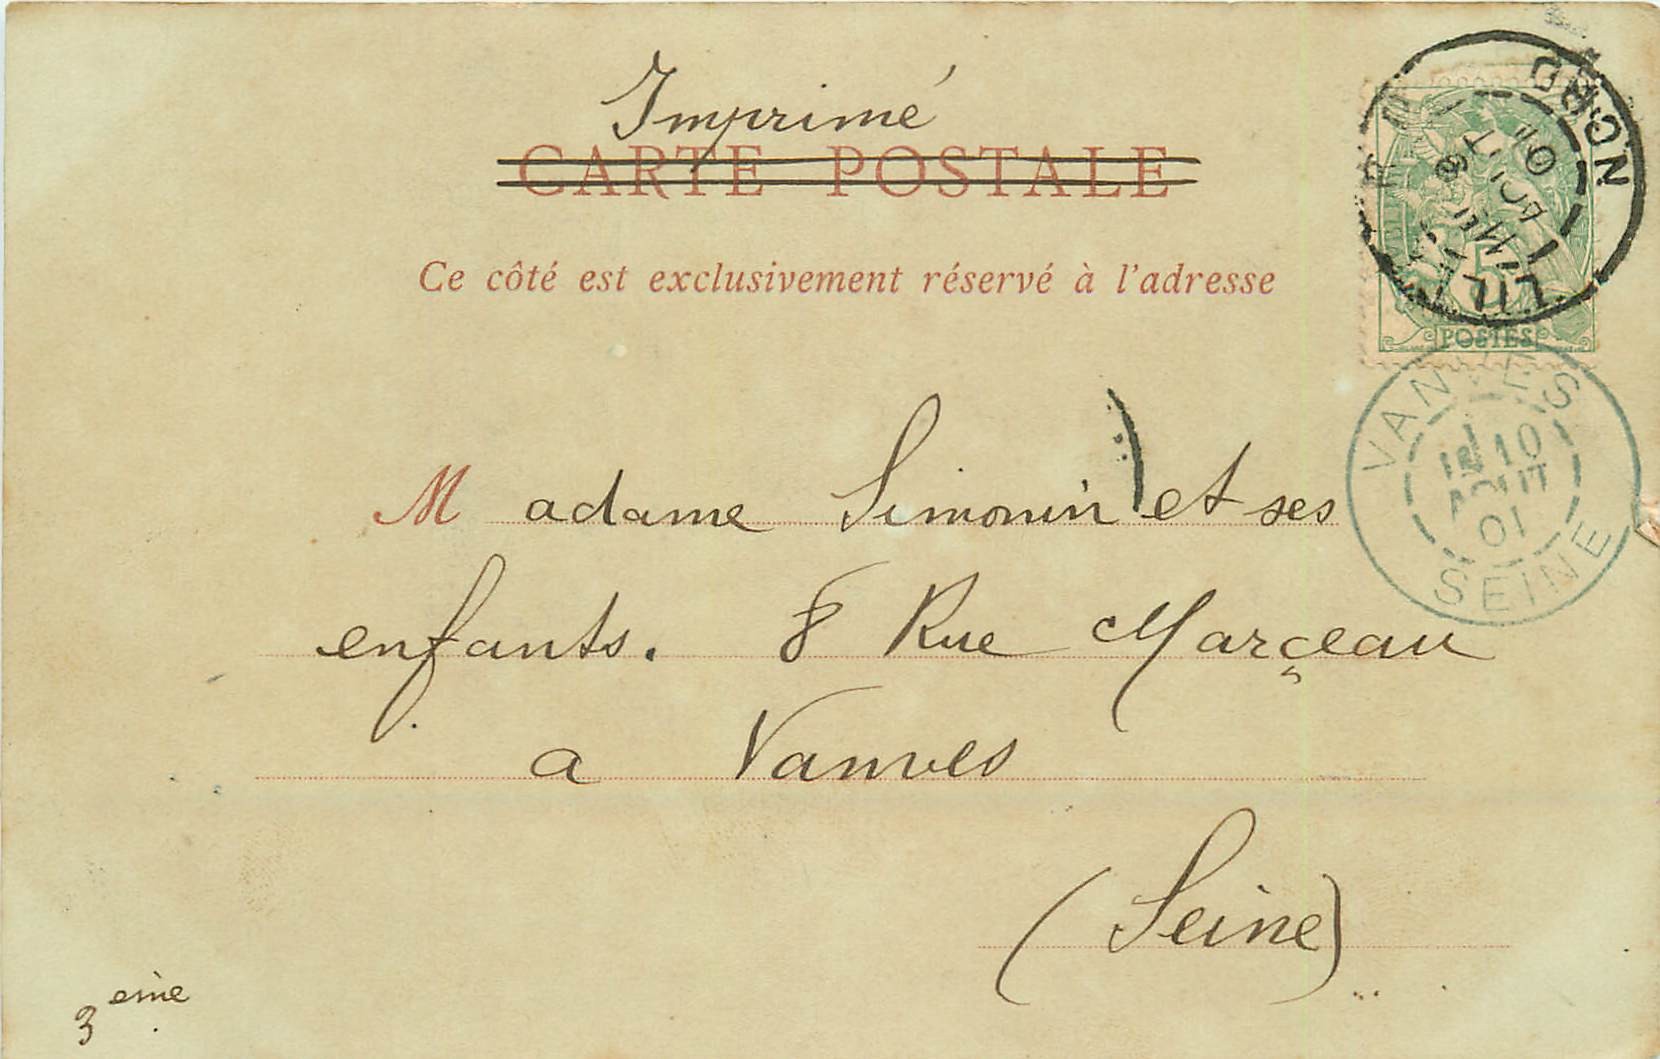 Imprimé
CARTE POSTALE
Ce côté est exclusivement réservé à l'adresse
POSTES
5
NORD
AOUT
01
VANVES
10
AOUT
01
SEINE
Madame Simonin et ses
enfants. 8 Rue Marçeau
a Vanves
(Seine)
3eme